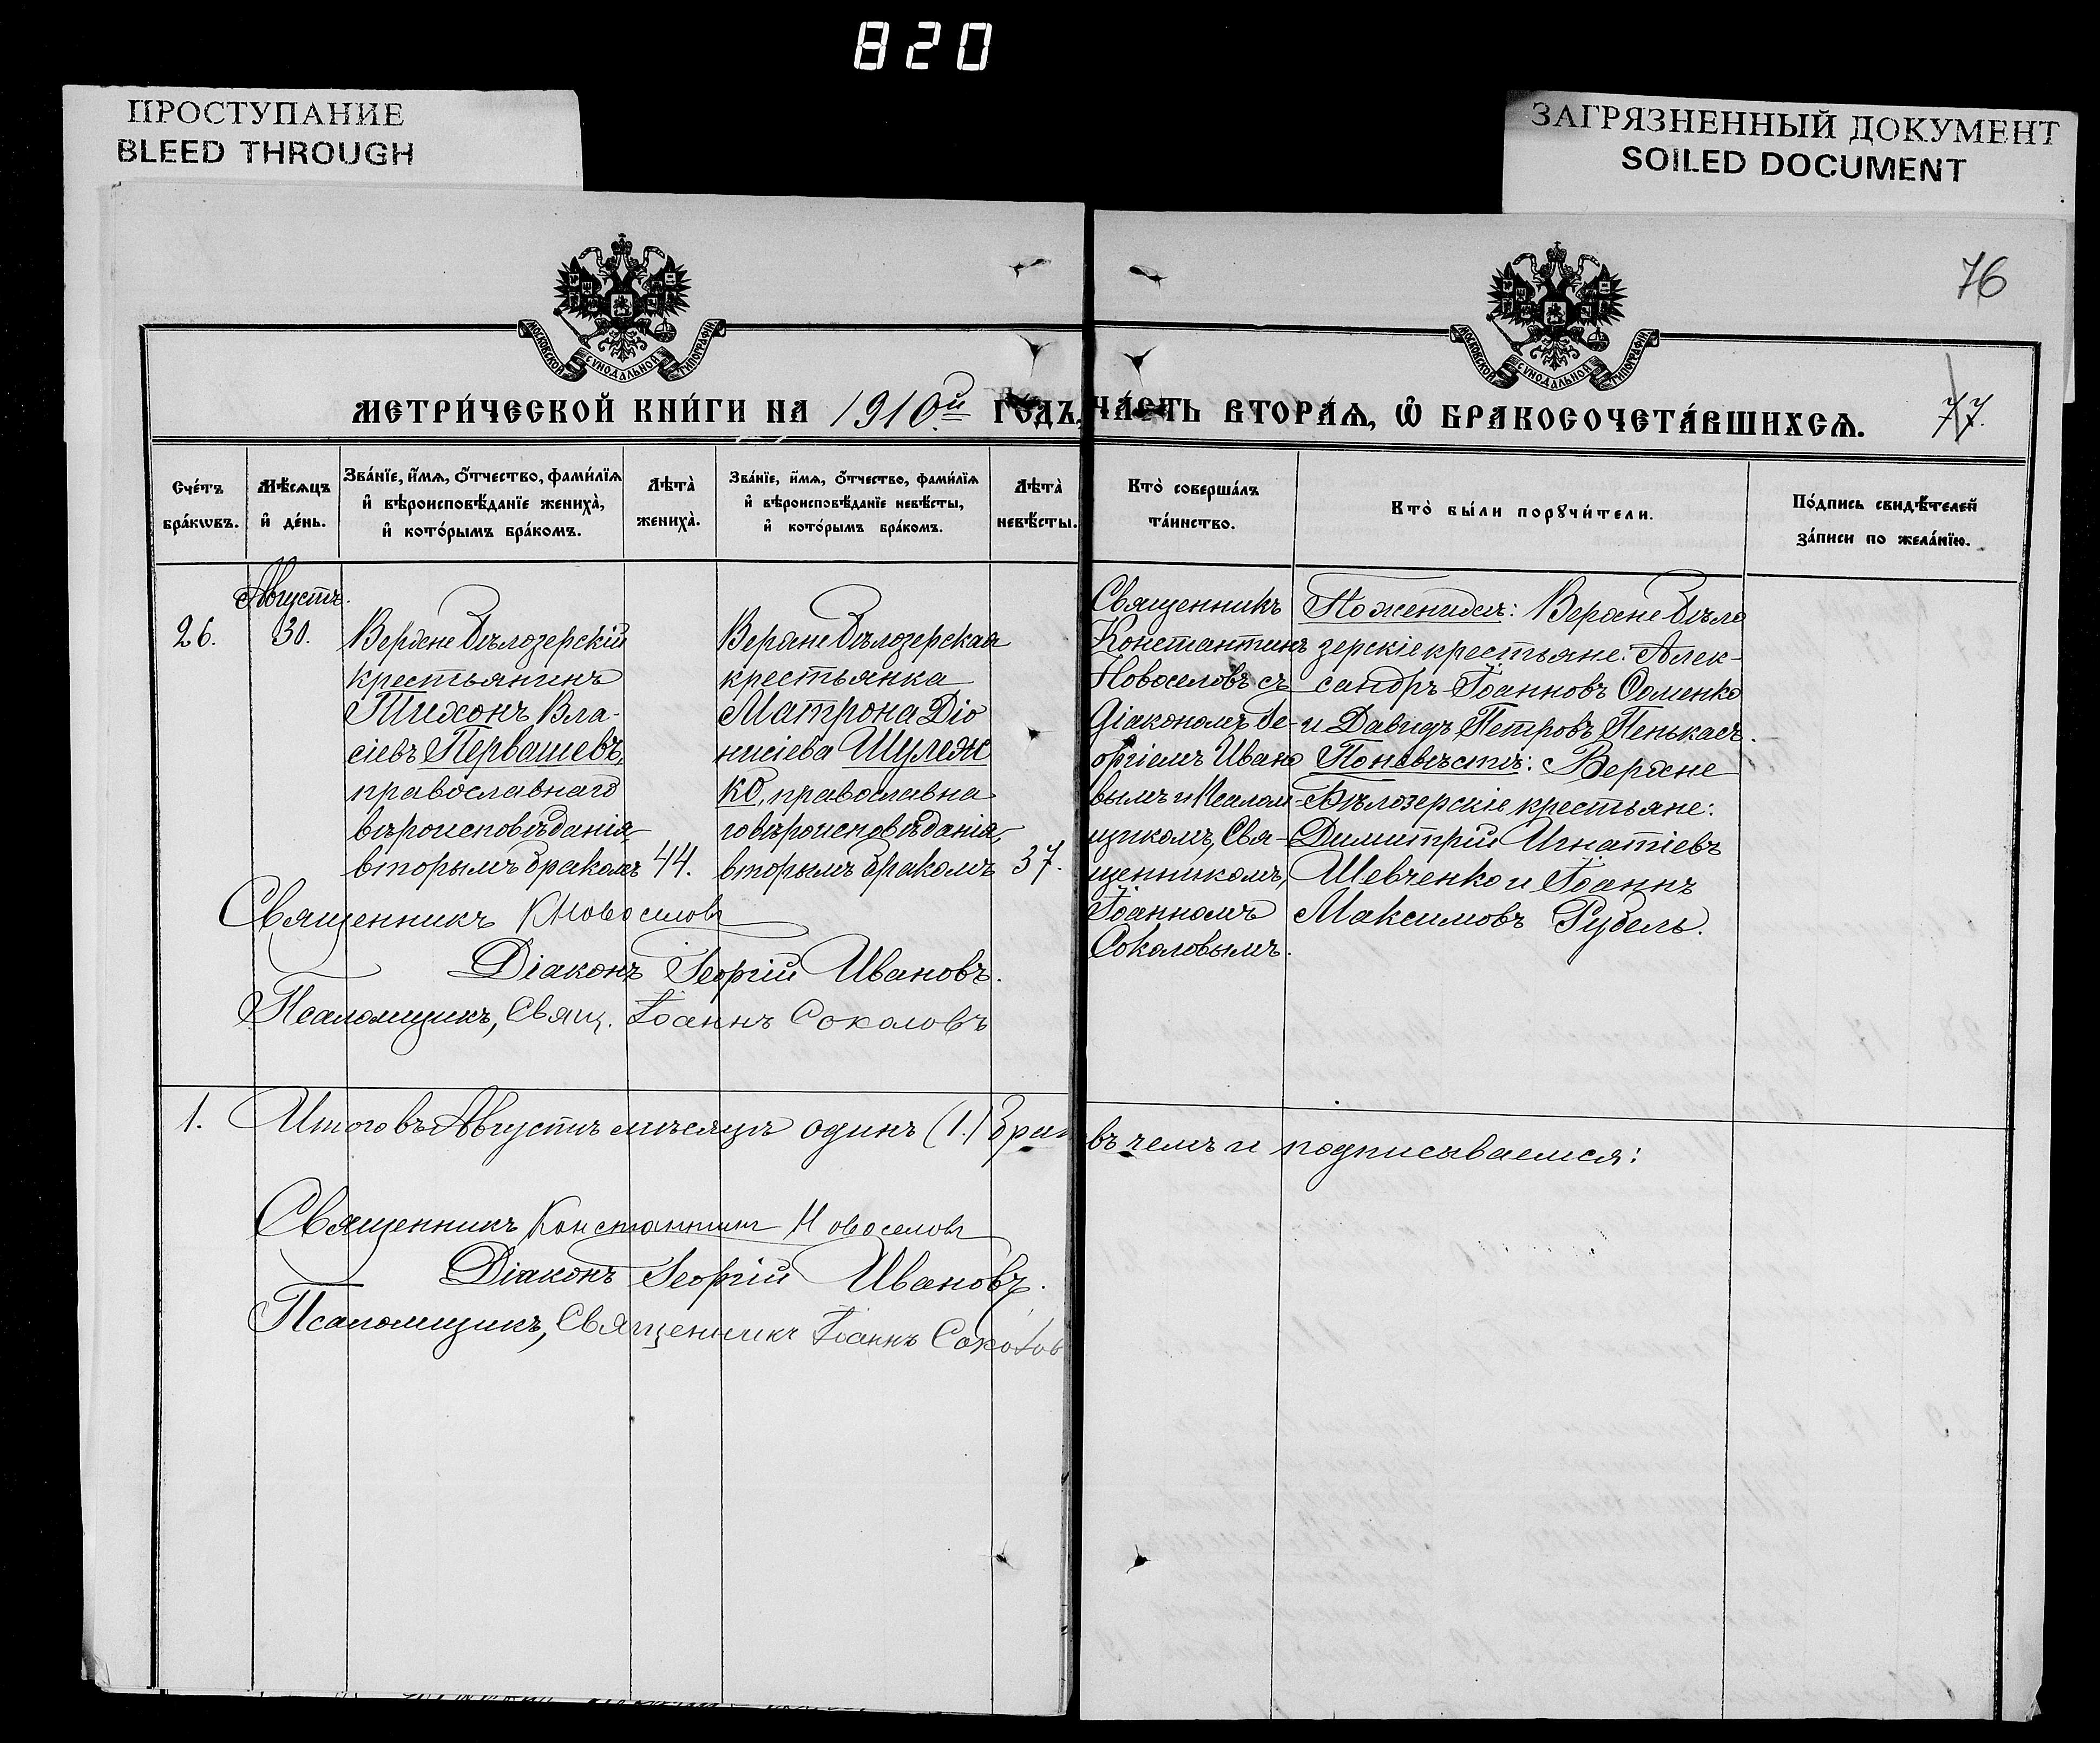 820
ПРОСТУПАНИЕ
BLEED THROUGH
ЗАГРЯЗНЕННЫЙ ДОКУМЕНТ
SOILED DOCUMENT
76
МОСКОВСКОЙ СУНОДАЛЬНОЙ ТИПОГРАФІИ
МОСКОВСКОЙ СУНОДАЛЬНОЙ ТИПОГРАФІИ
МЕТРИ́ЧЕСКОЙ КНИ́ГИ НА 1910й ГОДЪ, ЧА́СТЬ ВТОРА́Ѧ, Ѡ҆ БРАКОСОЧЕТА́ВШИХСѦ.
77.
Сче́тъ бра́кѡвъ.
Мѣ́сѧцъ и҆ де́нь.
Зва́нїе, и҆́мѧ, ѻ҆́тчество, фами́лїѧ и҆ вѣроисповѣ́данїе жениха̀, и҆ кото́рымъ бра́комъ.
Лѣта̀ жениха̀.
Зва́нїе, и҆́мѧ, ѻ҆́тчество, фами́лїѧ и҆ вѣроисповѣ́данїе невѣ́сты, и҆ кото́рымъ бра́комъ.
Лѣта̀ невѣ́сты.
Кто̀ соверша́лъ та́инство.
Кто̀ бы́ли порꙋчи́тели.
По́дпись свидѣ́телей за́писи по жела́нїю.
26.
Августъ.
30.
Верхне Бѣлозерскій
крестьянинъ
Тихонъ Вла-
сіевъ Первашевъ,
православнаго
вѣроисповѣданія,
вторымъ бракомъ
44.
Верхне Бѣлозерская
крестьянка
Матрона Діо
нисіева Шулеж
ко, православна
го вѣроисповѣданія,
вторымъ бракомъ
37.
Священникъ
Константинъ
Новоселовъ съ
діакономъ Ге-
оргіемъ Ивано
вымъ и Псалом-
щикомъ, Свя-
щенникомъ,
Іоанномъ
Соколовымъ.
По женихѣ: Верхне Бѣло
зерскіе крестьяне: Алек-
сандръ Іоанновъ Фоменко
и Давидъ Петровъ Пенькасъ.
По невѣстѣ: Верхне
Бѣлозерскіе крестьяне:
Димитрій Игнатіевъ
Шевченко и Іоаннъ
Максимовъ Рубель.
Священникъ К Новоселовъ
Діаконъ Георгій Ивановъ.
Псаломщикъ, Свящ. Іоаннъ Соколовъ
1. Итого въ Августѣ мѣсяцѣ одинъ (1.) брак въ чемъ и подписываемся:
Священникъ Константинъ Новоселовъ
Діаконъ Георгій Ивановъ.
Псаломщикъ, Священникъ Іоаннъ Соколов